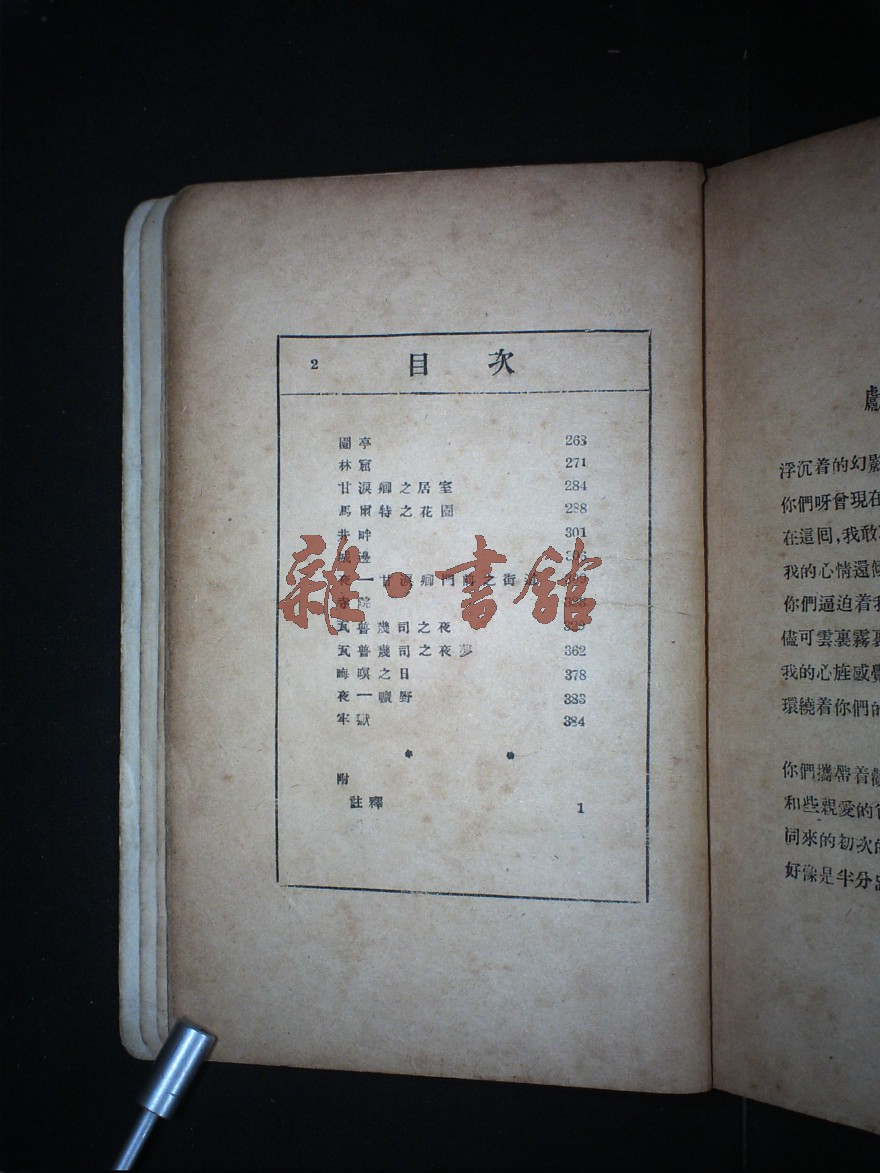 2 目次
園亭 263
林窟 271
甘淚卿之居室 284
馬爾特之花園 288
井畔 301
城邊
夜一甘淚卿門前之街道
寺院
瓦普幾司之夜
瓦普幾司之夜夢 362
晦暝之日 378
夜一曠野 383
牢獄 384
附
註釋 1
雜·書館
獻
浮沉着的幻影
你們呀曾現在
在這囘,我敢
我的心情還傾
你們逼迫着我
儘可雲裏霧裏
我的心旌感覺
環繞着你們的
你們攜帶着
和些親愛的
同來的初次的
好像是半分